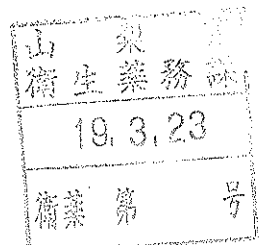 山梨県
衛生薬務課
19.3.23
衛薬第 号